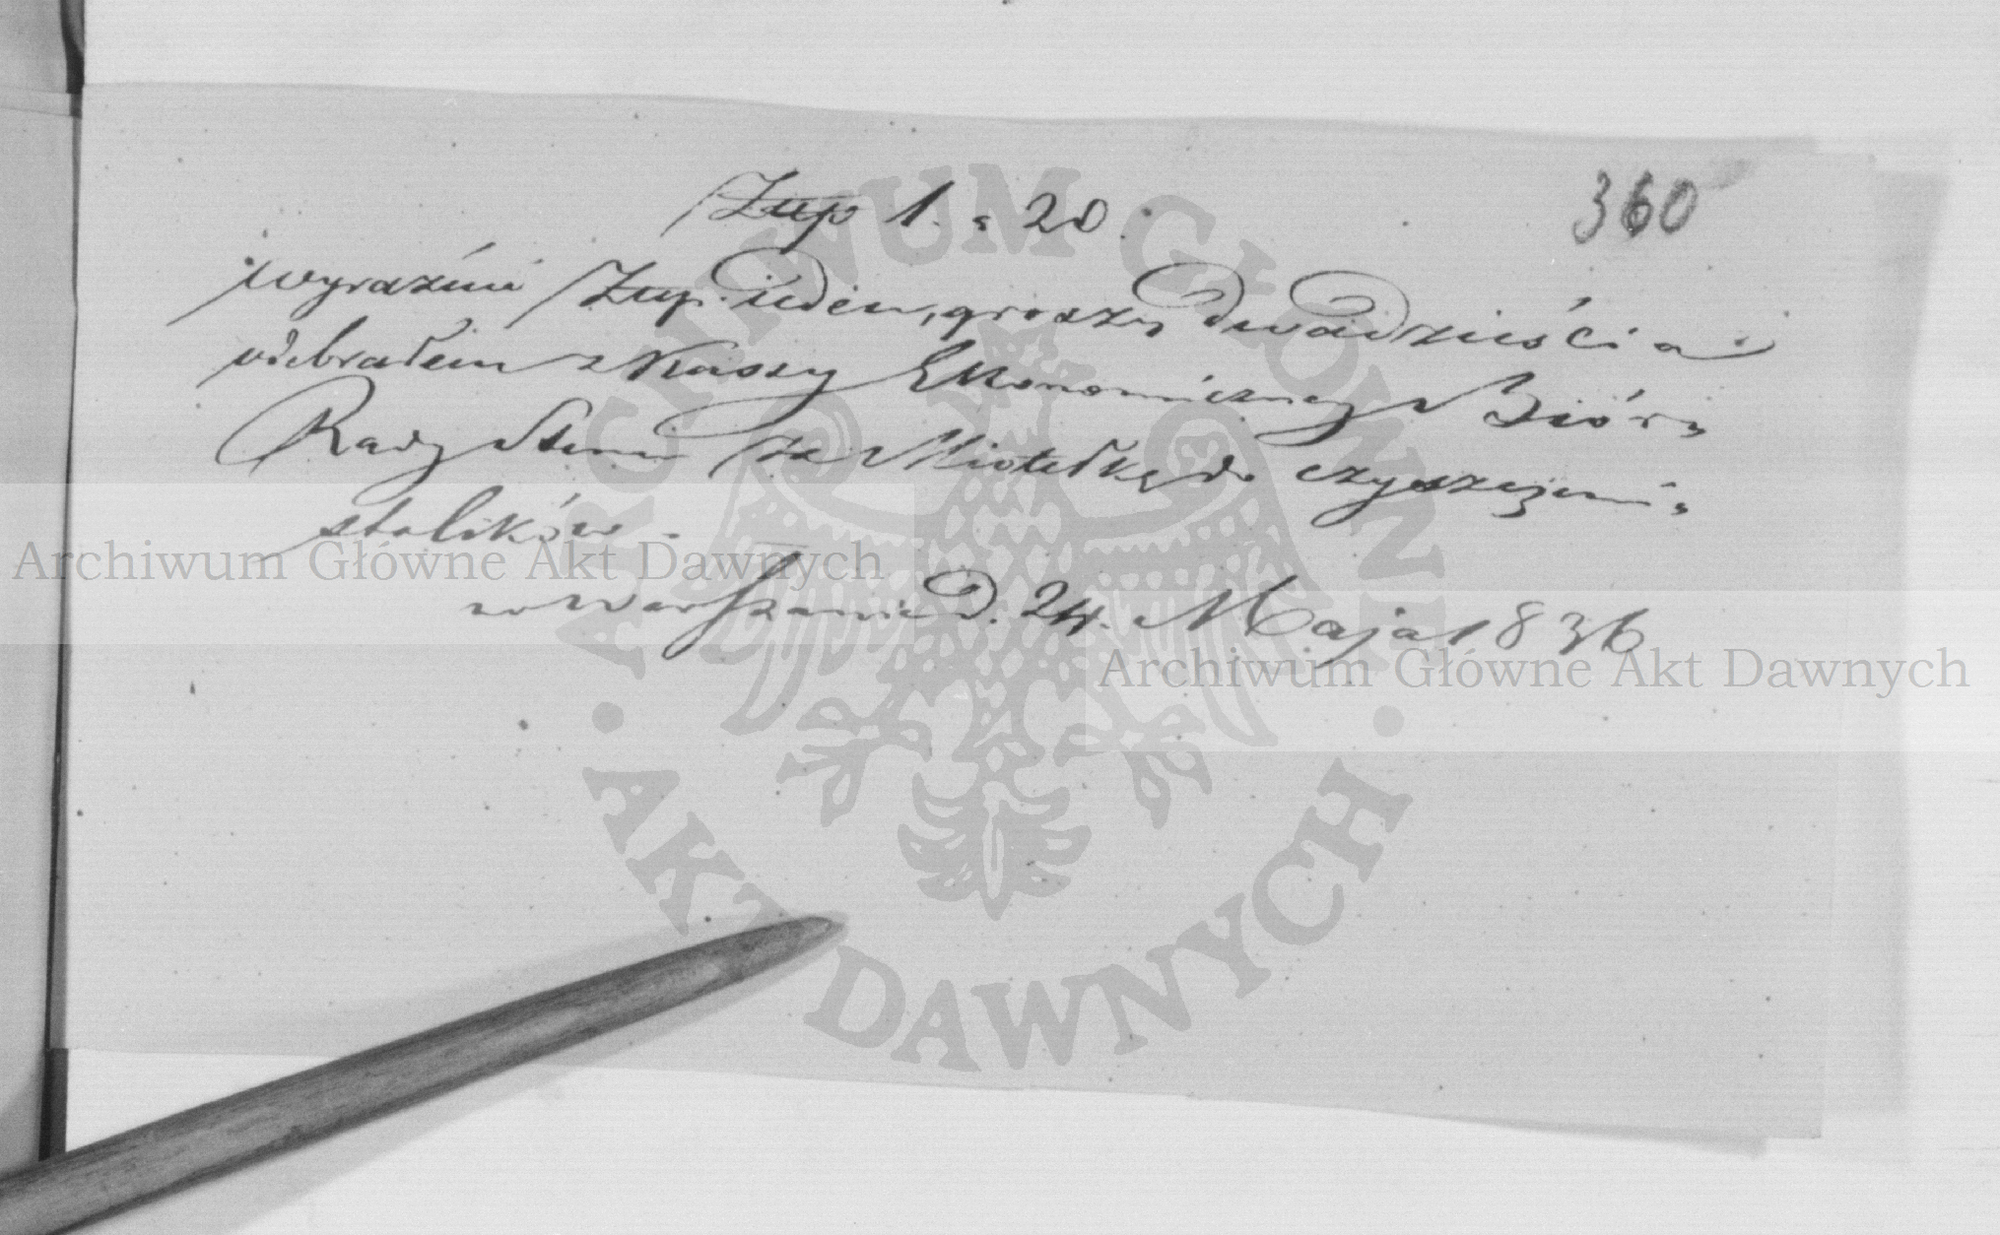 360
Złp 1. g 20.
wyraźnie Złp. ieden, groszy dwadzieścia
odebrałem z Kassy Ekonomiczney Bióra
Rady Stanu za Miotełkę do czyszczenia
stolików.
w Warszawie d. 24. Maja 1836
Archiwum Główne Akt Dawnych
Archiwum Główne Akt Dawnych
ARCHIWUM GŁÓWNE
AKT DAWNYCH